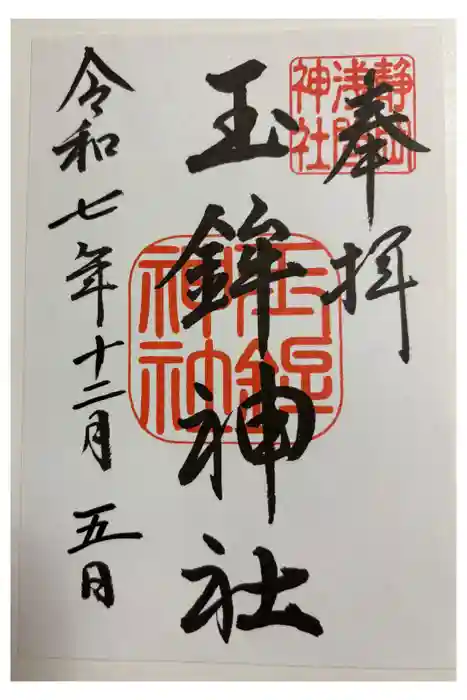 奉拝
静岡浅間神社
玉鉾神社
玉鉾神社
令和七年十二月五日